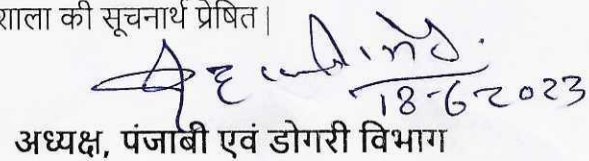 शाला की सूचनार्थ प्रेषित|
18-6-2023
अध्यक्ष, पंजाबी एवं डोगरी विभाग